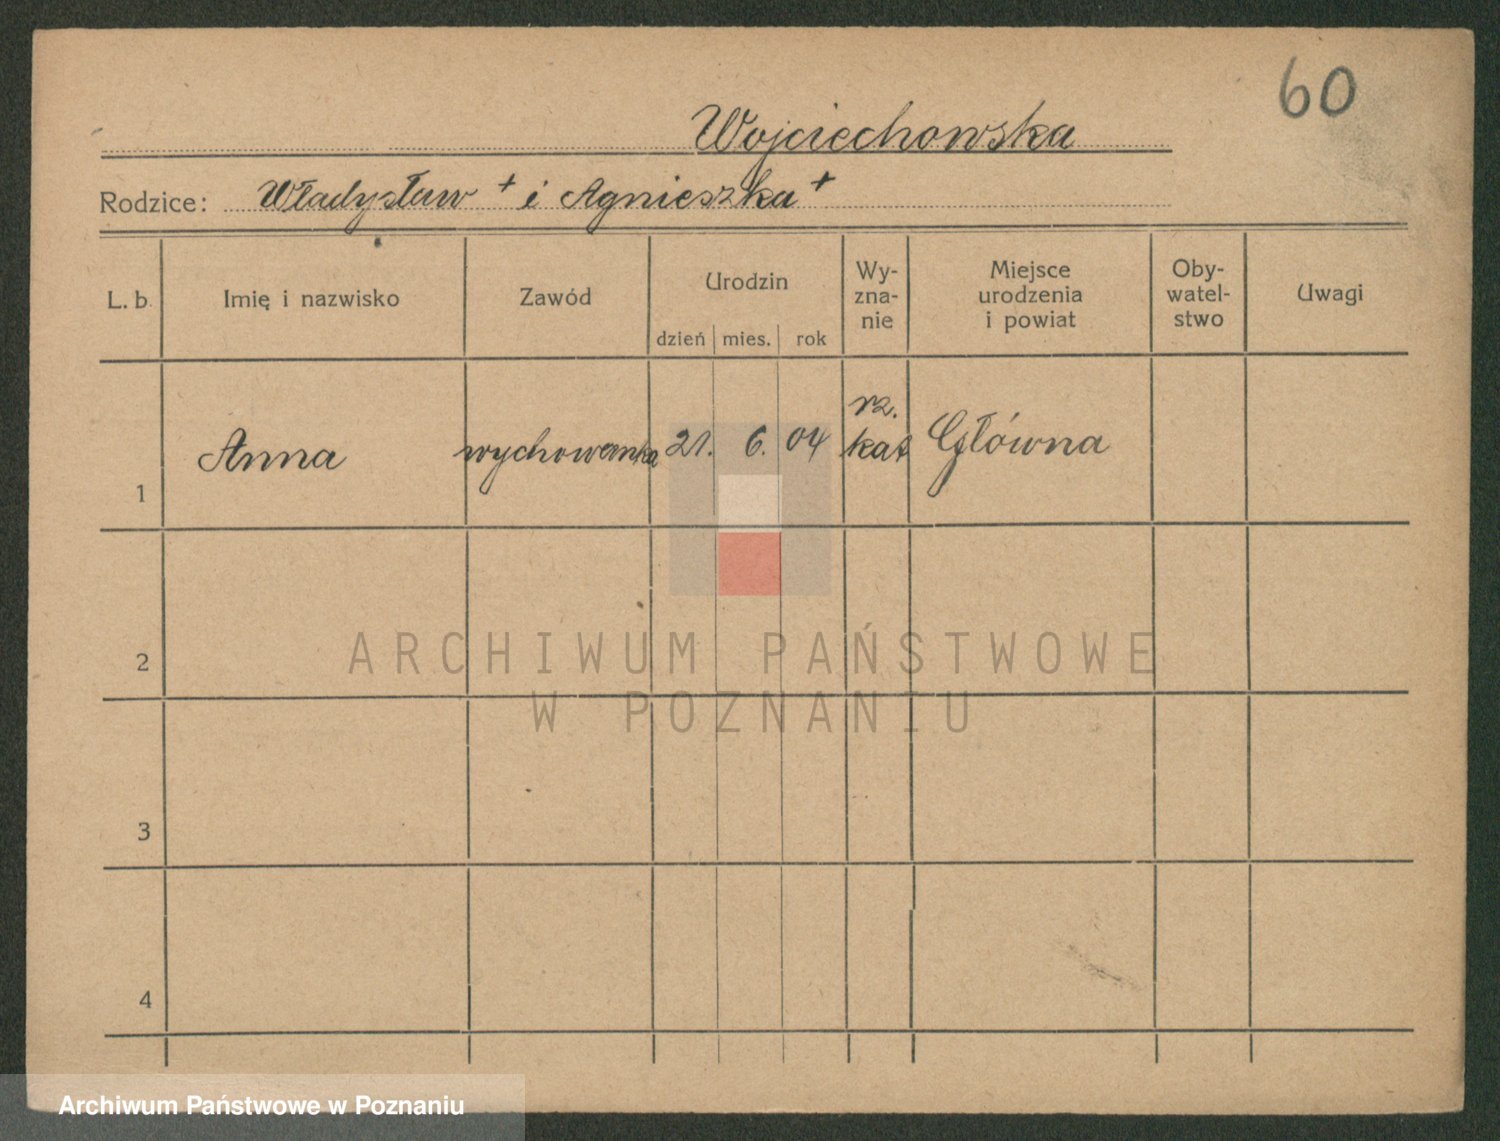 60
Wojciechowska
Rodzice: Władysław + i Agnieszka +
L. b. Imię i nazwisko Zawód Urodzin dzień mies. rok Wy-zna-nie Miejsce urodzenia i powiat Oby-watel-stwo Uwagi
1 Anna wychowanka 21. 6. 04 rz. kat Główna
2
3
4
ARCHIWUM PAŃSTWOWE
W POZNANIU
Archiwum Państwowe w Poznaniu